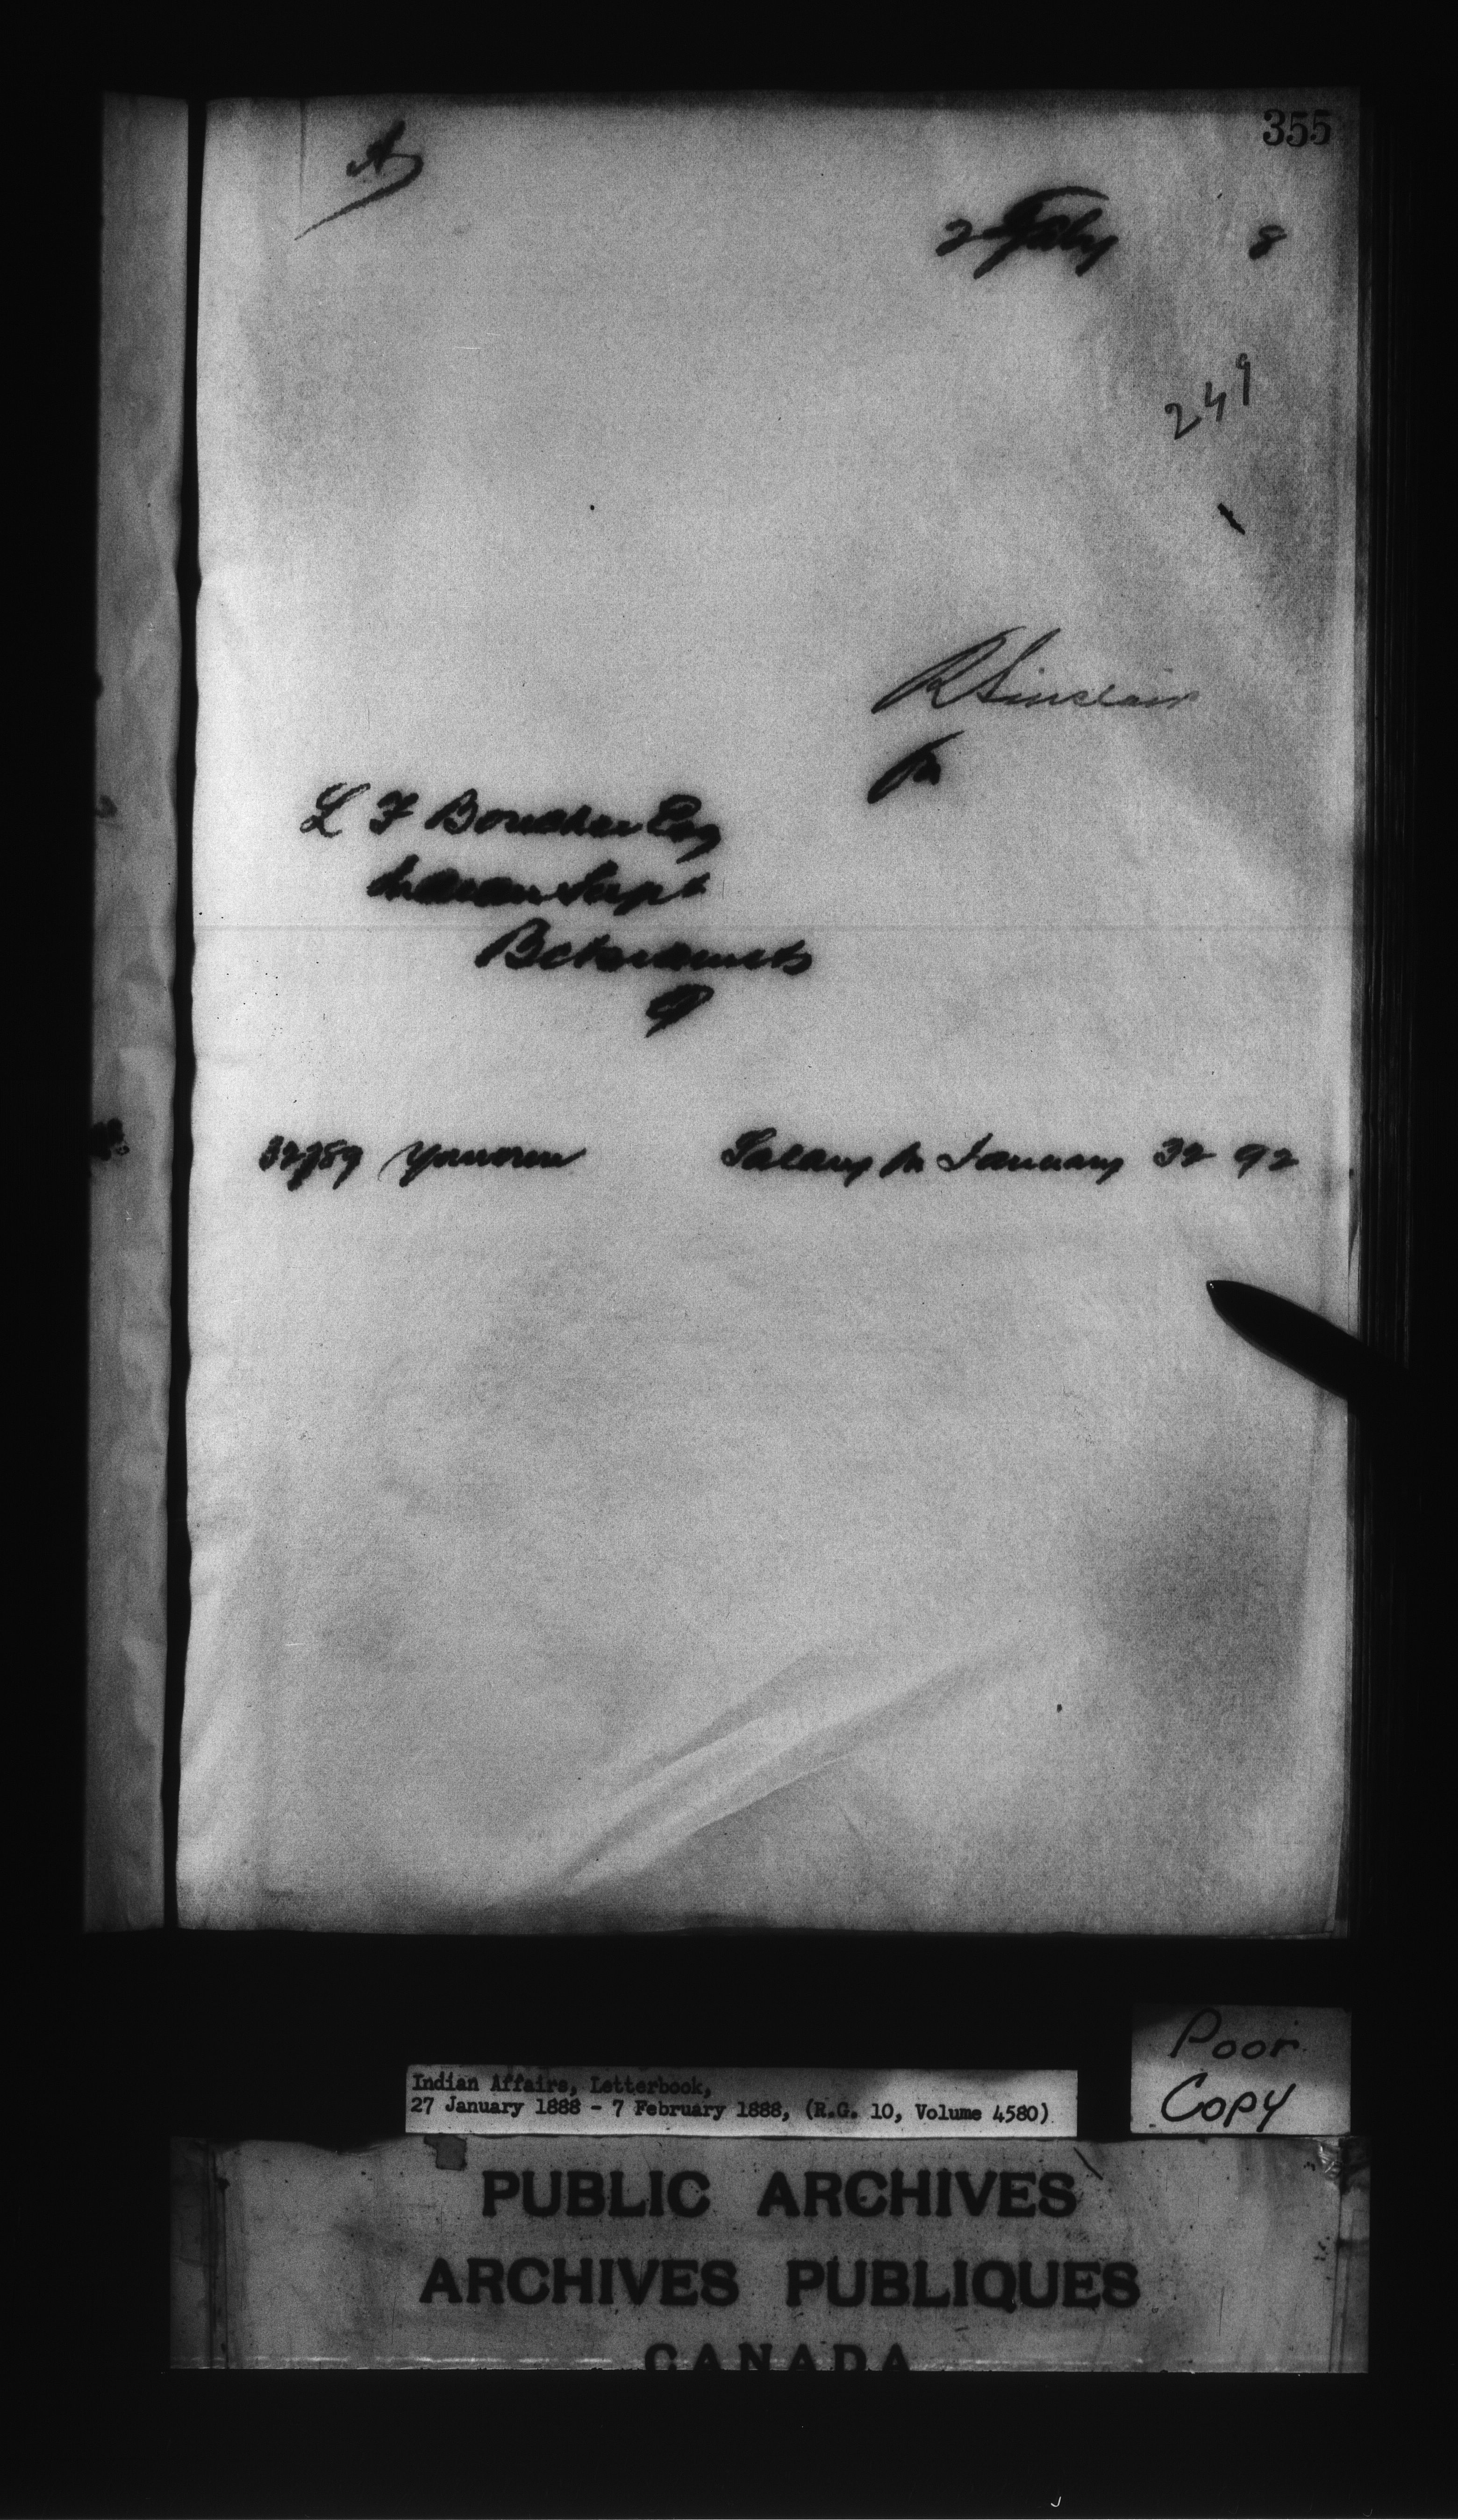 355
A
2 Feby 8
249
R Sinclair
fr
L F Boucher Esq
Indian Supt
Betsiamits
Q
Salary for January 32 92
Poor
Copy
Indian Affairs, Letterbook,
27 January 1888 - 7 February 1888, (R.G. 10, Volume 4580)
PUBLIC ARCHIVES
ARCHIVES PUBLIQUES
CANADA